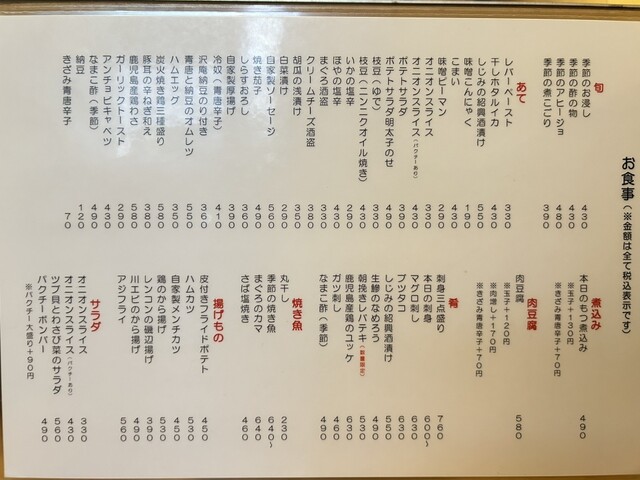 お食事（※金額は全て税込表示です）
旬
季節のお浸し 430
季節の酢の物 430
季節のアヒージョ 480
季節の煮こごり 390
あて
レバーペースト 330
干しホタルイカ 430
しじみの紹興酒漬け 550
味噌こんにゃく 190
こまい 430
味噌ピーマン 290
オニオンスライス 330
オニオンスライス（パクチーあり） 430
ポテトサラダ
ポテトサラダ明太子のせ
枝豆（ゆで） 330
枝豆（ニンニクオイル焼き） 430
いかの塩辛
ほやの塩辛
まぐろ酒盗 330
クリームチーズ酒盗 380
胡瓜の浅漬け 350
白菜漬け 290
自家製ソーセージ 560
焼き茄子 490
しらすおろし 360
自家製厚揚げ 390
冷奴（青唐辛子） 410
沢庵納豆のり付き 360
青唐と納豆のオムレツ 550
ハムエッグ 350
炭火焼き鶏三種盛り 580
豚耳の辛ねぎ和え 380
鹿児島産鶏わさ 580
ガーリックトースト 290
アンチョビキャベツ 430
なまこ酢（季節） 490
納豆 120
きざみ青唐辛子 70
煮込み
本日のもつ煮込み 490
※玉子＋130円
※きざみ青唐辛子＋70円
肉豆腐
肉豆腐 580
※玉子＋120円
※肉増し＋170円
※きざみ青唐辛子＋70円
肴
刺身三点盛り 760
本日の刺身 600〜
マグロ刺し 630
ブツタコ 630
しじみの紹興酒漬け 550
生鯵のなめろう 490
朝挽きレバテキ（数量限定） 530
鹿児島産鶏のユッケ 630
ガツ刺し 460
なまこ酢（季節） 490
焼き魚
丸干し 230
季節の焼き魚 640〜
まぐろのカマ 640〜
さば塩焼き 460
揚げもの
皮付きフライドポテト 450
ハムカツ 530
自家製メンチカツ 450
鶏のから揚げ 530
レンコンの磯辺揚げ 390
川エビのから揚げ 490
アジフライ 560
サラダ
オニオンスライス 330
オニオンスライス（パクチーあり） 430
ツブ貝とわさび菜のサラダ 560
パクチーボンバー 490
※パクチー大盛り＋90円